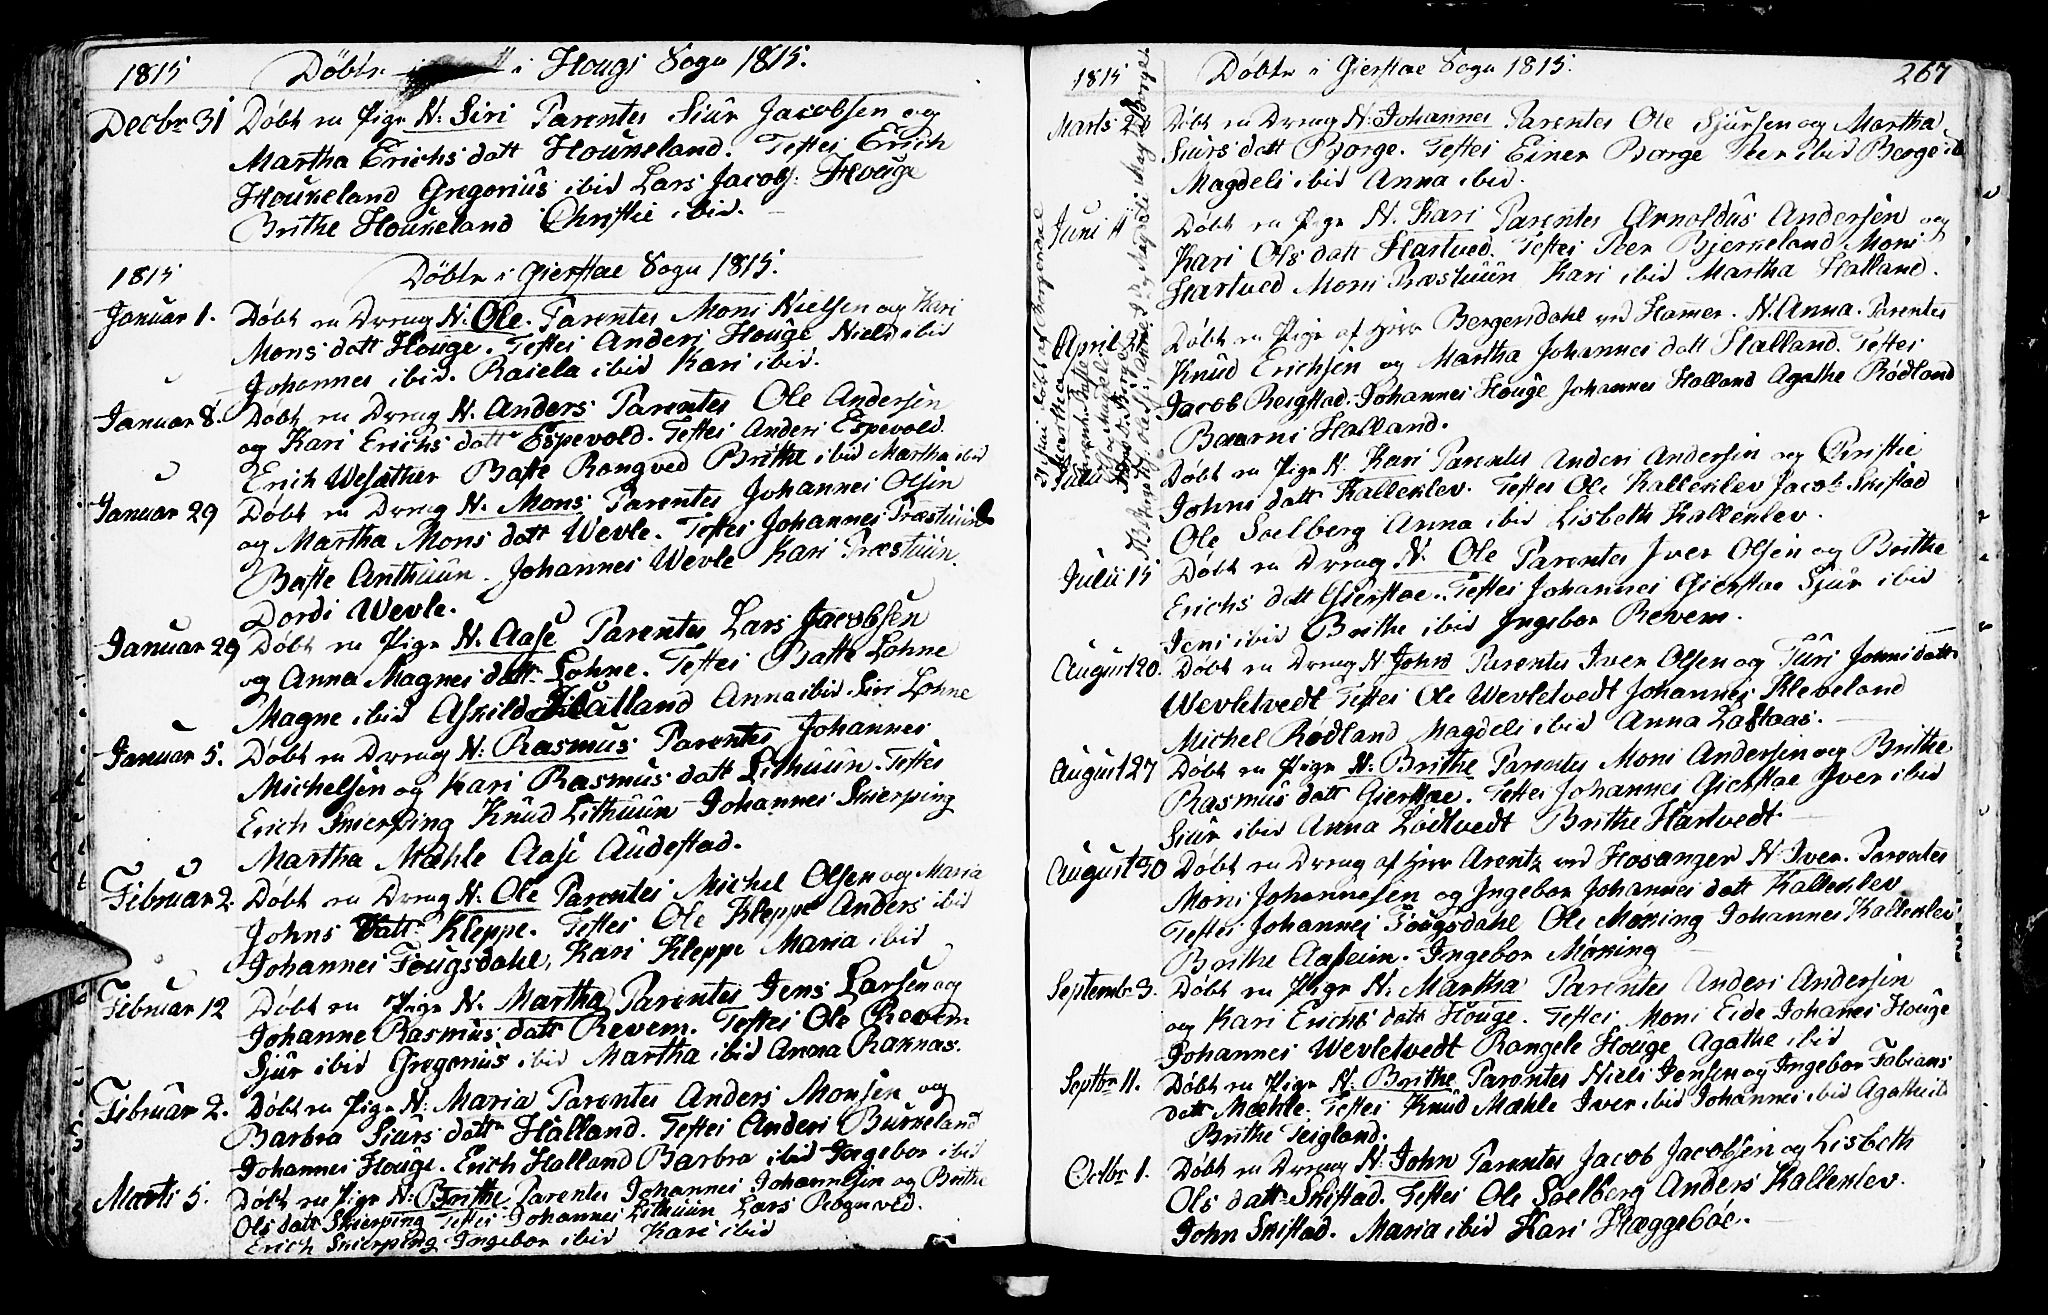 1815 Döbte i Hougs Sogn 1815.
Decbr 31 Döbt en Pige N. Siri Parentes Siur Jacobsen og
Martha Erichs datt Houkeland. Testes Erich
Houkeland Gregorius ibid Lars Jacobs: Houge
Brithe Houkeland Christie ibid.
1815 Döbte i Gierstae Sogn 1815.
Januar 1. Döbt en Dreng N: Ole. Parentes Mons Nielsen og Kari
Mons datt Houge. Testes Anders Houge Niels ibid
Johannes ibid. Raiela ibid Kari ibid.
Januar 8. Döbt en Dreng N. Anders Parentes Ole Andersen
og Kari Erichs datt Espevold. Testes Anders Espevold.
Erich Wesæther Baste Rongved Brithe ibid Martha ibid
Januar 29 Döbt en Dreng N. Mons Parentes Johannes Olsen
og Martha Mons datt Wevle. Testes Johannes Præstuun
Baste Anthuun. Johannes Wevle Kari Præstuun.
Dordi Wevle.
Januar 29 Döbt en Pige N. Aase Parentes Lars Jacobsen
og Anna Magnes datt Lohne. Testes Batte Lohne
Magne ibid Askild Hatland Anna ibid Siri Lohne
Januar 5. Döbt en Dreng N: Rasmus Parentes Johannes
Michelsen og Kari Rasmus datt Lithuun. Testes
Erich Skierping Knud Lithuun Johannes Skierping
Martha Mæhle Aase Audestad.
Februar 2. Döbt en Dreng N. Ole Parentes Michel Olsen og Maria
Johns datt Kleppe. Testes Ole Kleppe Anders ibid
Johannes Fougsdahl, Kari Kleppe Maria ibid
Februar 12 Döbt en Pige N. Martha Parentes Jens Larsen og
Johanne Rasmus datt Revem. Testes Ole Revem
Sjur ibid Gregorius ibid Martha ibid Anna Raknas.
Februar 2. Döbt en Pige N: Maria Parentes Anders Monsen og
Barbra Siurs datt Halland. Testes Anders Burkeland
Johannes Houge. Erich Halland Barbra ibid Ingebor ibid
Marts 5. Döbt en Pige N: Brithe Parentes Johannes Johannesen og Brithe
Ols datt Skierping Testes Johannes Lithuun Lars Rognved.
Erich Skierping Ingebor ibid Kari ibid
1815 Döbte i Gierstae Sogn 1815. 267
Marts Döbt en Dreng N. Johannes Parentes Ole Sjursen og Martha
Siurs datt Borge. Testes Einer Borge Peer ibid Berge ib
Magdeli ibid Anna ibid.
Juni 11 Döbt en Pige N. Kari Parentes Arnoldus Andersen og
Kari Ols datt Hartved. Testes Peer Bjerkeland Mons
Hartved Mons Præstuun Kari ibid Martha Halland.
April Döbt en Pige af Herr Bergersdahl ved Hamer. N. Anna. Parentes
Knud Erichsen og Martha Johannes datt Halland. Testes
Jacob Reigstad. Johannes Houge Johannes Halland Agathe Rödland
Baarni Halland.
Julii Döbt en Pige N. Kari Parentes Anders Andersen og Christie
Johns datt Kalleklev. Testes Ole Kalleklev Jacob Skistad
Ole Soelberg Anna ibid Lisbeth Kalleklev.
Julii 15 Döbt en Dreng N. Ole Parentes Iver Olsen og Brithe
Erichs datt Gierstae. Testes Johannes Gierstae Sjur ibid
Jens ibid Brithe ibid Ingebor Revem.
August 20. Döbt en Dreng N John Parentes Iver Olsen og Turi Johns datt
Wevletvedt Testes Ole Wevletvedt Johannes Kleveland
Michel Rödland Magdeli ibid Anna Lastaas.
August 27 Döbt en Pige N. Brithe Parentes Mons Andersen og Brithe
Rasmus datt Gierstae. Testes Johannes Gierstae Iver ibid
Siur ibid Anna Lödtvedt Brithe Hartvedt
August 30 Döbt en Dreng af Herr Arentz ved Hosanger N. Iver. Parentes
Mons Johannesen og Ingebor Johannes datt Kalleklev
Testes Johannes Fougsdahl Ole Möking Johannes Kalleklev
Brithe Aasheim. Ingebor Möking
Septembr 3. Döbt en Pige N. Martha Parentes Anders Andersen
og Kari Erichs datt Houge. Testes Mons Eide Johannes Houge
Johannes Wevletvedt Rangele Houge Agathe ibid
Septbr 11. Döbt en Pige N. Brithe Parentes Niels Jensen og Ingebor Fabians
datt Mæhle. Testes Knud Mæhle Iver ibid Johannes ibid Agathe ib
Brithe Teigland.
Octbr 1. Döbt en Dreng N. John Parentes Jacob Jacobsen og Lisbeth
Ols datt Skistad. Testes Ole Soelberg Anders Kalleklev.
John Skistad. Maria ibid Kari Hæggeböe.